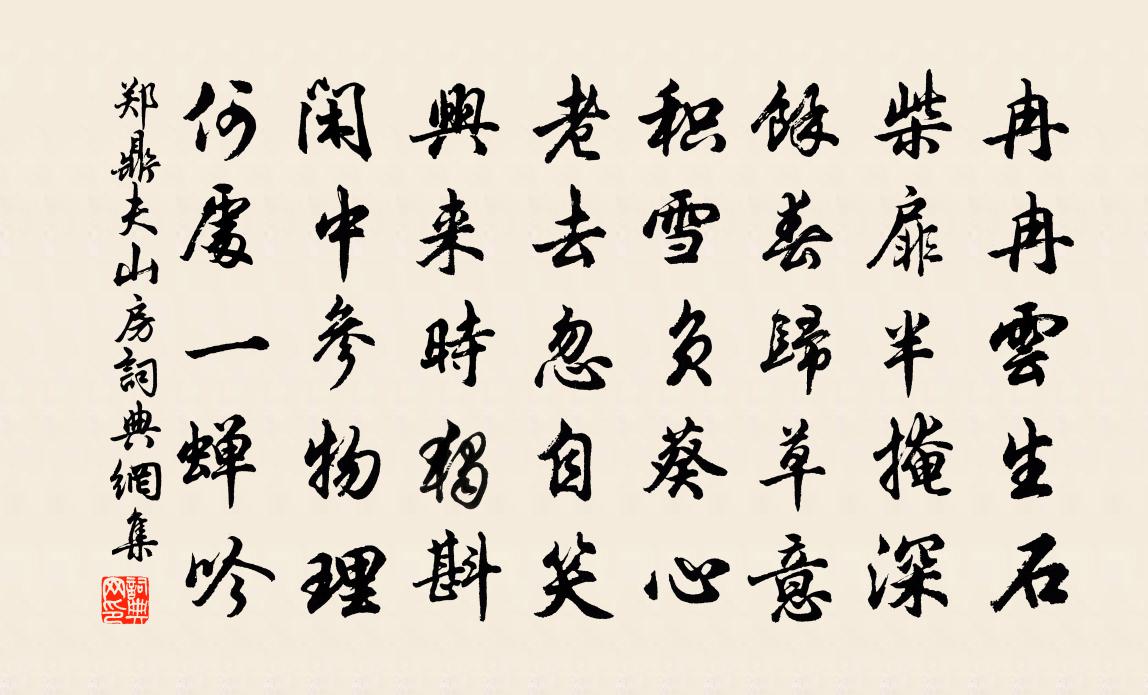 冉冉雲生石
柴扉半掩深
餘春歸草意
积雪負葵心
老去忽自笑
興来時獨斟
閑中參物理
何處一蝉吟
郑鼎夫山房詞典網集
詞典网印